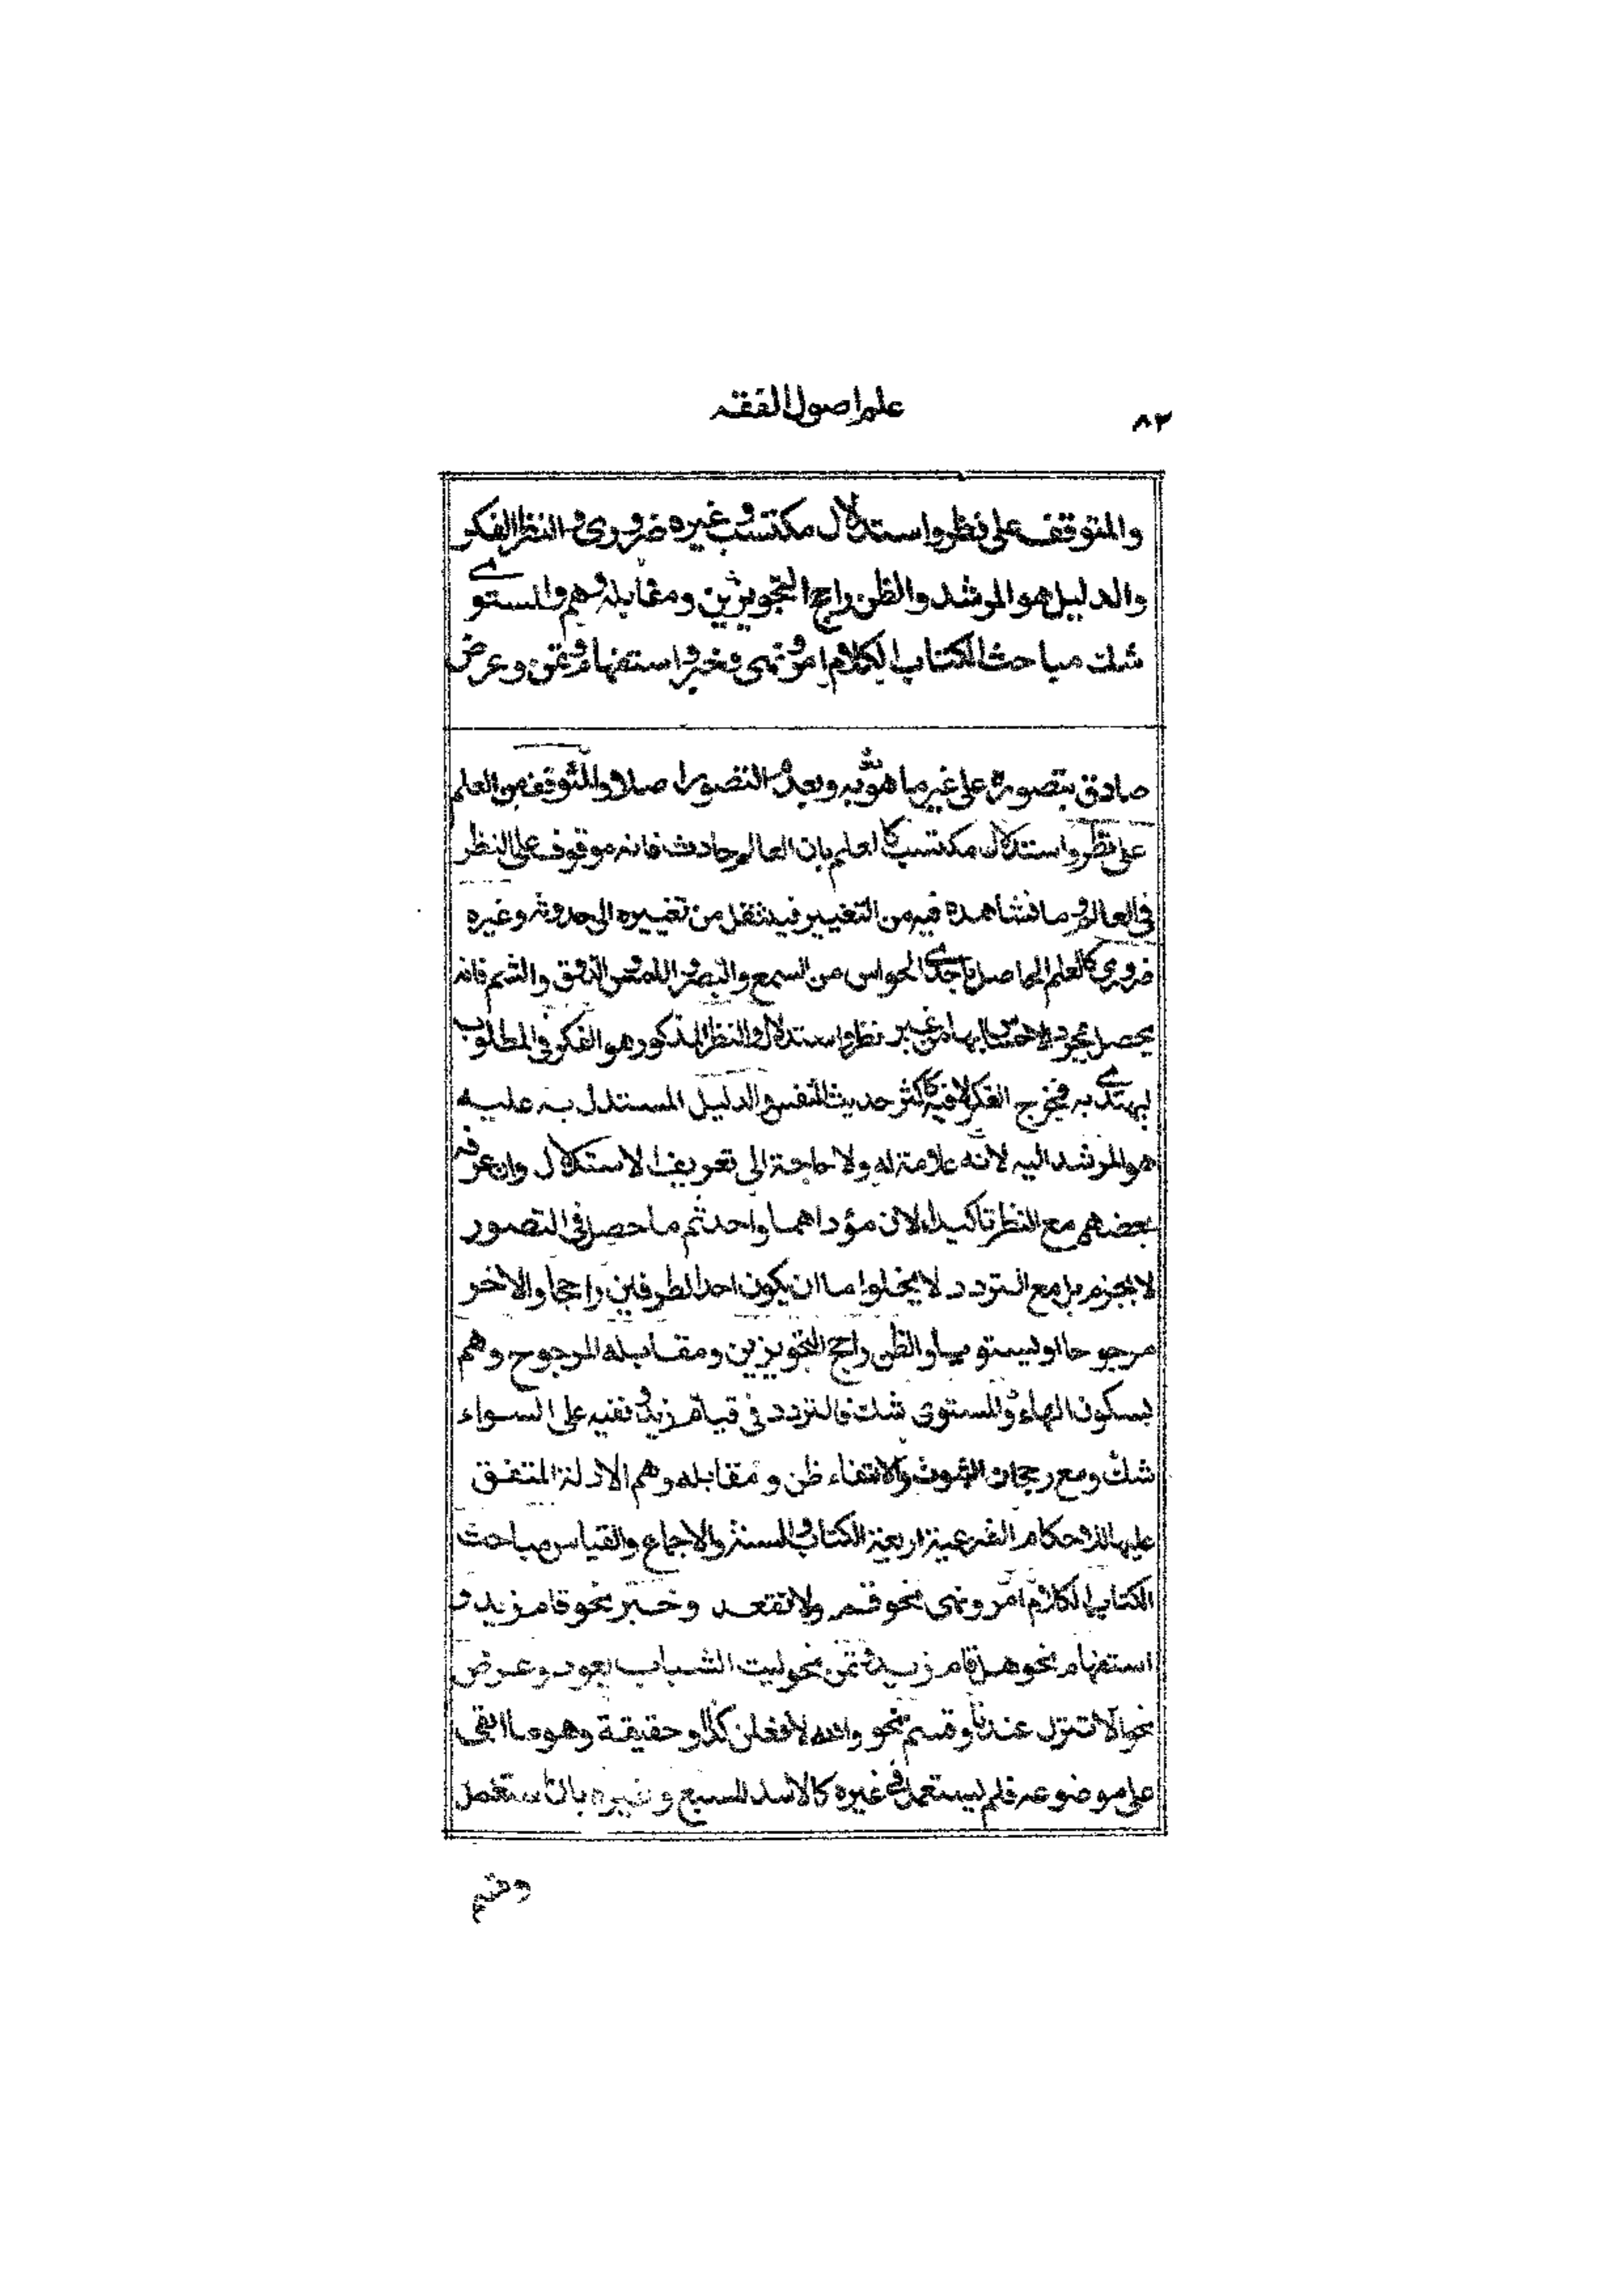 ٨٢
علم اصول الفقه
والمتوقف على نظر واستدلال مكتسب وغيره ضروري والنظر الفكر
والدليل هو المرشد والظن راجح التجويزين ومقابله وهم والمستوي
شك مباحث الكتاب الكلام امر ونهى وخبر واستفهام وتمن وعرض
صادق بتصوره على غير ما هو به وبعدم التصور اصلا والمتوقف من العلم
على نظر واستدلال مكتسب كالعلم بان العالم حادث فانه موقوف على النظر
فى العالم وما نشاهده فيه من التغيير فينتقل من تغييره الى حدوثه وغيره
ضروري كالعلم الحاصل باحدى الحواس من السمع والبصر واللمس والذوق والشم فانه
يحصل بمجرد الاحساس بها من غير نظر واستدلال والنظر المذكور هو الفكر فى المطلوب
ليهتدى به فخرج الفكر لا فيه كاكثر حديث النفس والدليل المستدل به عليه
هو المرشد اليه لانه علامة له ولا حاجة الى تعريف الاستدلال وان عرفه
بعضهم مع النظر تاكيدا لان مؤداهما واحد ثم ما حصل فى التصور
لا بجزم بل مع التردد لا يخلو اما ان يكون احد الطرفين راجحا والاخر
مرجوحا او يستويا والظن راجح التجويزين ومقابله المرجوح وهم
بسكون الهاء والمستوى شك فالتردد فى قيام زيد ونفيه على السواء
شك ومع رجحان الثبوت والانتفاء ظن ومقابله وهم الادلة المتفق
عليها للاحكام الشرعية اربعة الكتاب والسنة والاجماع والقياس مباحث
الكتاب الكلام امر ونهى نحو قم ولا تقعد وخبر نحو قام زيد و
استفهام نحو هل قام زيد وتمن نحو ليت الشباب يعود وعرض
نحو الا تنزل عندنا وقسم نحو والله لافعلن كذا وحقيقة وهو ما ابقى
على موضوعه فلم يستعمل فى غيره كالاسد للسبع وغيره بان استعمل
وقسم